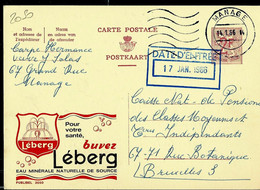 2050
CARTE POSTALE
POSTKAART
MANAGE
Nom et adresse de l'expéditeur
Naam en adres van de afzender
Carpe Hermance
Veuve J Salas
67 Grand'Rue
Manage
DATE D'ENTREE
17 JAN. 1966
Pour votre santé,
buvez
Léberg
Léberg
EAU MINÉRALE NATURELLE DE SOURCE
Caisse Nat. de Pensions
des Classes Moyennes et
Indépendants
67-71 Rue Botanique
Bruxelles 3